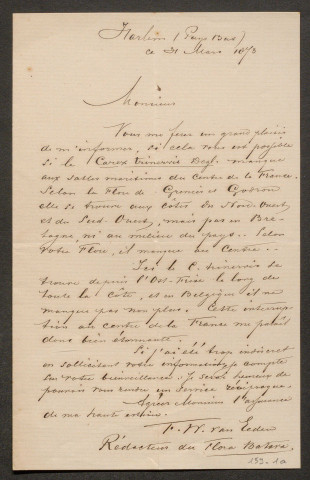 Harlem (Pays Bas)
ce 31 Mars 1878
Monsieur
Vous me ferez un grand plaisir
de m'informer, si cela vous est possible
si le Carex trinervis Degl. manque
aux sables maritimes du centre de la France.
Selon la Flore de Grenier et Godron
elle se trouve aux côtes du Nord Ouest
et du Sud-Ouest, mais pas en Bre-
tagne, ni au milieu du pays. Selon
votre Flore, il manque au Centre.
Ici le C. trinervis se
trouve depuis l'Ost-Frise le long de
toute la Côte, et en Belgique il ne
manque pas non plus. Cette interrup-
tion au centre de la France me paraît
donc bien étonnante.
Si j'ai été trop indiscret
en sollicitant votre information, je compte
sur votre bienveillance. Je serai heureux de
pouvoir vous rendre un service réciproque.
Agréez Monsieur l'assurance
de ma haute estime.
F. W. van Eeden
Rédacteur du Flora Batava